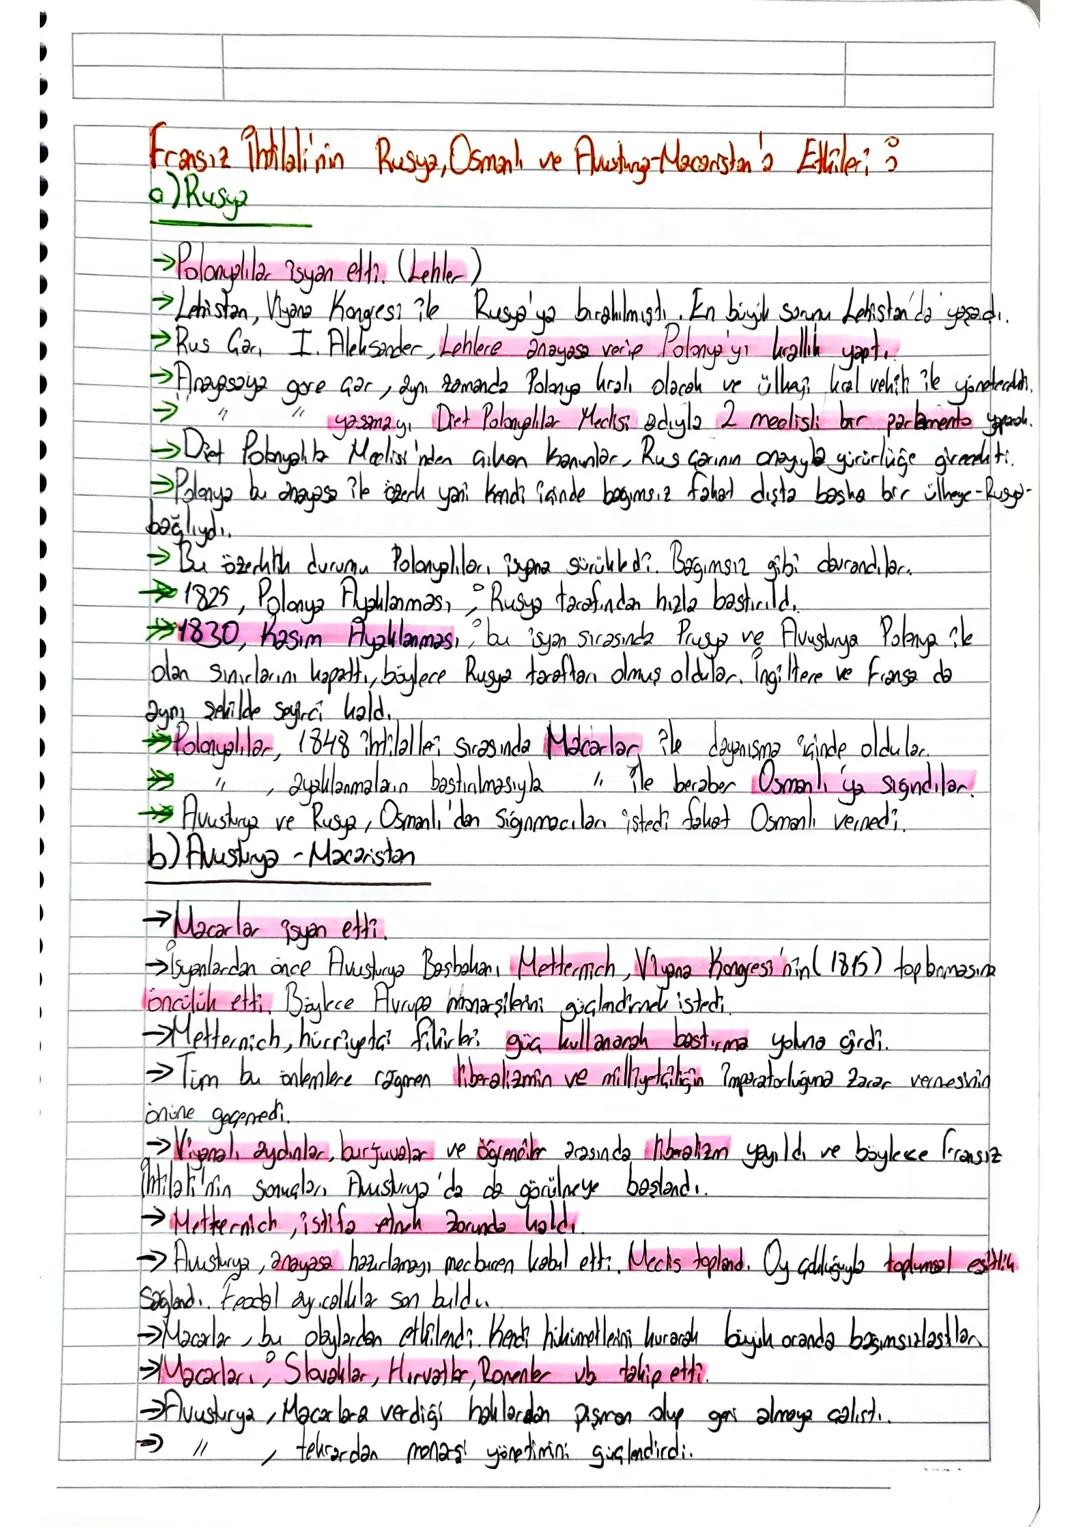 Fransız İhtilali'nin Rusya, Osmanlı ve Avusturya-Macaristan'a Etkileri:
a) Rusya
→Polonyalılar isyan etti. (Lehler)
→Lehistan, Viyana Kongresi ile Rusya'ya bırakılmıştı. En büyük sorunu Lehistan'da yaşadı.
→Rus Çarı I. Aleksander, Lehlere anayasa verip Polonya'yı krallık yaptı.
→Anayasaya göre çar, aynı zamanda Polonya kralı olacak ve ülkeyi kral vekili ile yönetecekti.
→ " " yasamayı Diet Polonyalılar Meclisi adıyla 2 meclisli bir parlamento yapacak.
→Diet Polonyalılar Meclisi'nden çıkan kanunlar, Rus çarının onayıyla yürürlüğe girecekti.
→Polonya bu anayasa ile özerk yani kendi içinde bağımsız fakat dışta başka bir ülkeye-Rusya-
bağlıydı.
→Bu özerklik durumu Polonyalıları isyana sürükledi. Bağımsız gibi davrandılar.
→1825, Polonya Ayaklanması; Rusya tarafından hızla bastırıldı.
→1830, Kasım Ayaklanması; bu isyan sırasında Prusya ve Avusturya Polonya ile
olan sınırlarını kapattı, böylece Rusya taraftarı olmuş oldular. İngiltere ve Fransa da
aynı şekilde seyirci kaldı.
→Polonyalılar, 1848 ihtilalleri sırasında Macarlar ile dayanışma içinde oldular.
→ " , ayaklanmaların bastırılmasıyla " ile beraber Osmanlı'ya sığındılar.
→Avusturya ve Rusya, Osmanlı'dan sığınmacıları istedi fakat Osmanlı vermedi.
b) Avusturya - Macaristan
→Macarlar isyan etti.
→İsyanlardan önce Avusturya Başbakanı Metternich, Viyana Kongresi'nin (1815) toplanmasına
öncülük etti. Böylece Avrupa monarşilerini güçlendirmek istedi.
→Metternich, hürriyetçi fikirleri güç kullanarak bastırma yoluna girdi.
→Tüm bu önlemlere rağmen liberalizmin ve milliyetçiliğin İmparatorluğuna zarar vermesinin
önüne geçemedi.
→Viyanalı aydınlar, burjuvalar ve öğrenciler arasında liberalizm yayıldı ve böylece Fransız
İhtilali'nin sonuçları Avusturya'da da görülmeye başlandı.
→Metternich, istifa etmek zorunda kaldı.
→Avusturya, anayasa hazırlamayı mecburen kabul etti. Meclis toplandı. Oy çokluğuyla toplumsal eşitlik
sağlandı. Feodal ayrıcalıklar son buldu.
→Macarlar, bu olaylardan etkilendi. Kendi hükümetlerini kurarak büyük oranda bağımsızlaştılar.
→Macarları; Slovaklar, Hırvatlar, Romenler vb takip etti.
→Avusturya, Macarlara verdiği haklardan pişman olup geri almaya çalıştı.
→ " , tekrardan monarşi yönetimini güçlendirdi.